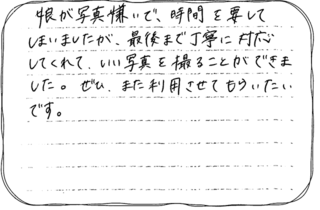 娘が写真嫌いで、時間を要して
しまいましたが、最後まで丁寧に対応
してくれて、いい写真を撮ることができま
した。ぜひ、また利用させてもらいたい
です。